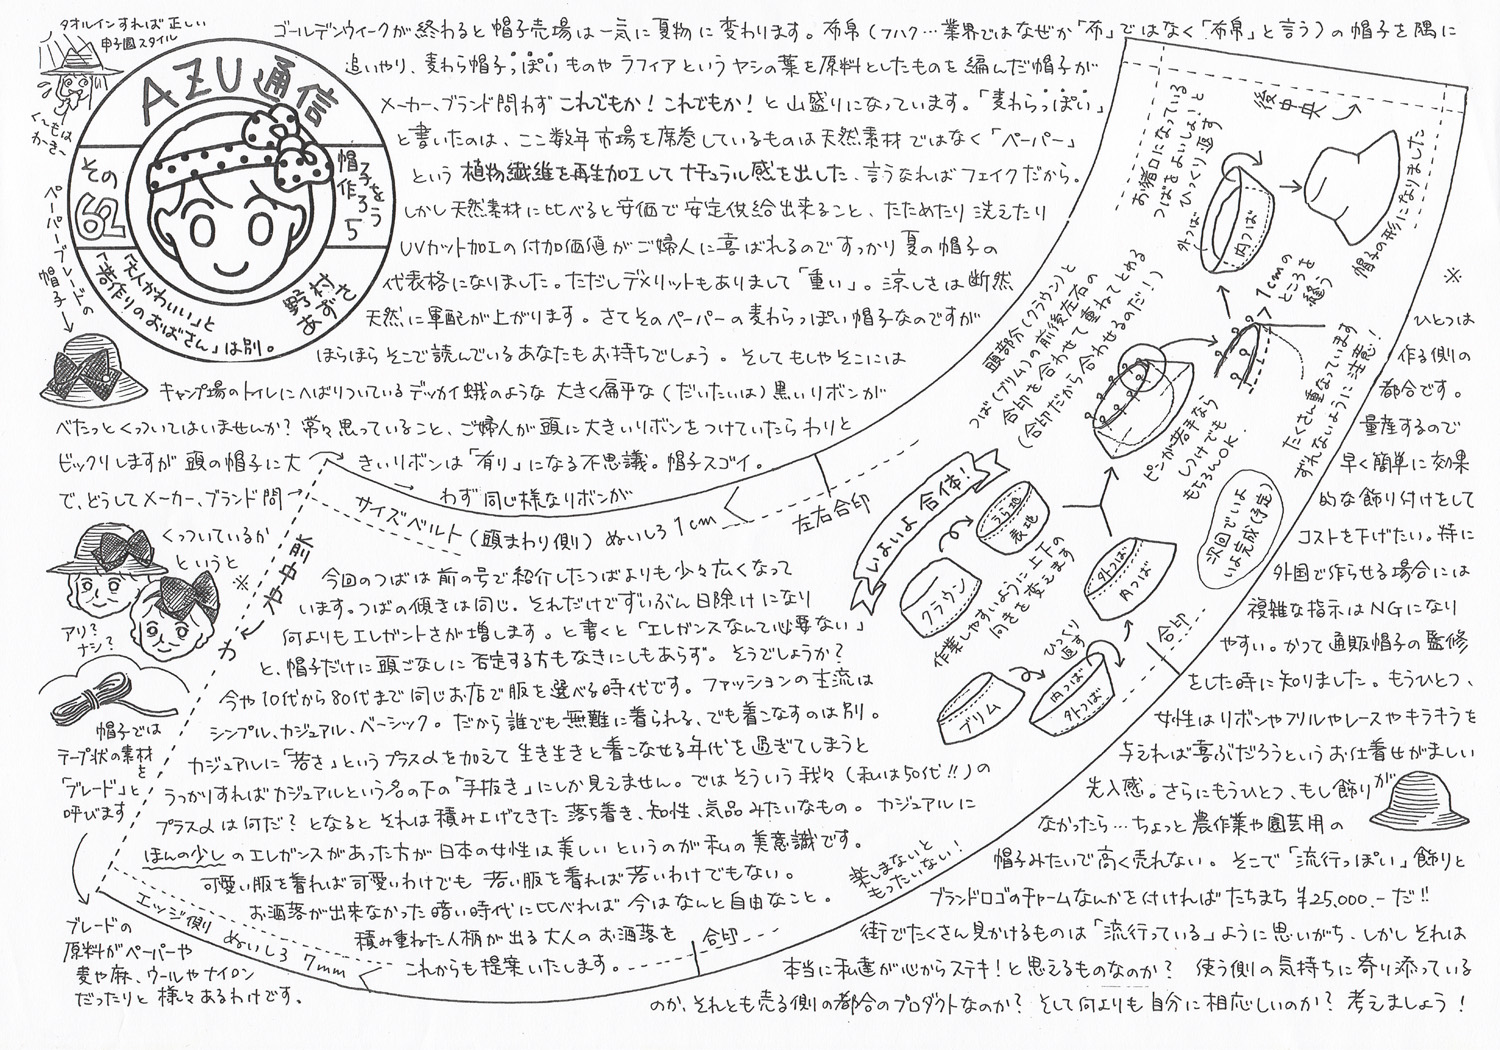 タオルインすれば正しい
甲子園スタイル
ペーパーブレードの
帽子
AZU通信
その
62
帽子を
作ろう
5
「大人かわいい」と
「若作りのおばさん」は別。
野村
あずさ
ゴールデンウィークが終わると帽子売場は一気に夏物に変わります。布帛(フハク…業界ではなぜか「布」ではなく「布帛」と言う)の帽子を隅に
追いやり、麦わら帽子っぽいものやラフィアというヤシの葉を原料としたものを編んだ帽子が
メーカー、ブランド問わずこれでもか!これでもか!と山盛りになっています。「麦わらっぽい」
と書いたのは、ここ数年市場を席巻しているものは天然素材ではなく「ペーパー」
という植物繊維を再生加工してナチュラル感を出した、言うなればフェイクだから。
しかし天然素材に比べると安価で安定供給出来ること、たためたり洗えたり
UVカット加工の付加価値がご婦人に喜ばれるのですっかり夏の帽子の
代表格になりました。ただしデメリットもありまして「重い」。涼しさは断然
天然に軍配が上がります。さてそのペーパーの麦わらっぽい帽子なのですが
ほらほらそこで読んでいるあなたもお持ちでしょう。そしてもしやそこには
キャンプ場のトイレにへばりついているデッカイ蛾のような大きく扁平な(だいたいは)黒いリボンが
べたっとくっついてはいませんか?常々思っていること、ご婦人が頭に大きいリボンをつけていたらわりと
ビックリしますが頭の帽子に大きいリボンは「有り」になる不思議。帽子スゴイ。
で、どうしてメーカー、ブランド問わず同じ様なリボンが
くっついているか
というと
※
アリ?
ナシ?
帽子では
テープ状の素材
を
「ブレード」と
呼びます
ブレードの
原料がペーパーや
麦や麻、ウールやナイロン
だったりと様々あるわけです。
サイズベルト(頭まわり側)ぬいしろ1cm
左右合印
前中央
わ
今回のつばは前の号で紹介したつばよりも少々広くなって
います。つばの傾きは同じ。それだけでずいぶん日除けになり
何よりもエレガントさが増します。と書くと「エレガンスなんて必要ない」
と、帽子だけに頭ごなしに否定する方もなきにしもあらず。そうでしょうか?
今や10代から80代まで同じお店で服を選べる時代です。ファッションの主流は
シンプル、カジュアル、ベーシック。だから誰でも無難に着られる、でも着こなすのは別。
カジュアルに「若さ」というプラスαを加えて生き生きと着こなせる年代を過ぎてしまうと
うっかりすればカジュアルという名の下の「手抜き」にしか見えません。ではそういう我々(私は50代!!)の
プラスαは何だ?となるとそれは積み上げてきた落ち着き、知性、気品みたいなもの。カジュアルに
ほんの少しのエレガンスがあった方が日本の女性は美しいというのが私の美意識です。
可愛い服を着れば可愛いわけでも若い服を着れば若いわけでもない。
お洒落が出来なかった暗い時代に比べれば今はなんと自由なこと。
積み重ねた人柄が出る大人のお洒落を
これからも提案いたします。
楽しまないと
もったいない!
エッジ側 ぬいしろ 7mm
合印
合印
後中央
いよいよ合体!
クラウン
うら地
表地
作業しやすいように上下の
向きを変えます
ブリム
ひっくり
返す
内つば
外つば
外つば
内つば
頭部分(クラウン)と
つば(ブリム)の前後左右の
合印を合わせて重ねてとめる
(合印だから合わせるのだ!)
ピンが苦手なら
しつけでも
もちろんOK.
1cmの
ところを
縫う
たくさん重なっています
ずれないように注意!
お猪口になっている
つばをよいしょ!と
ひっくり返す
外つば
内つば
帽子の形になりました
次回でいよ
いよ完成(予定)
※
ひとつは
作る側の
都合です。
量産するので
早く簡単に効果
的な飾り付けをして
コストを下げたい。特に
外国で作らせる場合には
複雑な指示はNGになり
やすい。かつて通販帽子の監修
をした時に知りました。もうひとつ、
女性はリボンやフリルやレースやキラキラを
与えれば喜ぶだろうというお仕着せがましい
先入感。さらにもうひとつ、もし飾りが
なかったら…ちょっと農作業や園芸用の
帽子みたいで高く売れない。そこで「流行っぽい」飾りと
ブランドロゴのチャームなんかを付ければたちまち¥25,000.-だ!!
街でたくさん見かけるものは「流行っている」ように思いがち、しかしそれは
本当に私達が心からステキ!と思えるものなのか? 使う側の気持ちに寄り添っている
のか、それとも売る側の都合のプロダクトなのか?そして何よりも自分に相応しいのか?考えましょう!